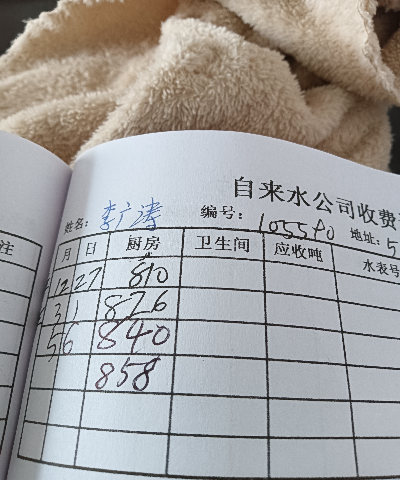 自来水公司收费
姓名: 李广涛 编号: 105540 地址: 5
注 月 日 厨房 卫生间 应收吨 水表号
12 27 810
3 1 826
5 6 840
858